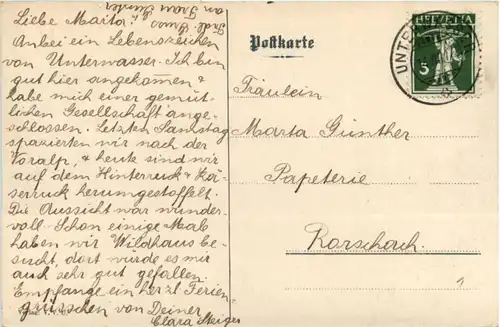 Liebe Maita,
Anbei ein Lebenszeichen
von Unterwasser. Ich bin
gut hier angekommen &
habe mich einer gemüt-
lichen Gesellschaft ange-
schlossen. Letzten Samstag
spazierten wir nach der
Voralp, & heute sind wir
auf dem Hinterruck & Kä-
serruck herumgestoffelt.
Die Aussicht war wunder-
voll. Schon einige Mal
haben wir Wildhaus be-
sucht, dort würde es mir
auch sehr gut gefallen.
Empfange ein herzl. Ferien-
grüsschen von Deiner
Clara Steiger
an Frau Günter
Postkarte
HELVETIA
5
Fräulein
Marta Günther
Papeterie
Rorschach.